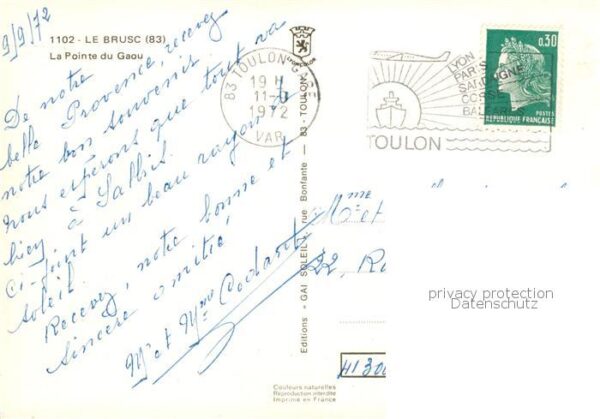 1102 - LE BRUSC (83)
La Pointe du Gaou
9/9/72
De notre
belle Provence, recevez
notre bon souvenir
nous espérons que tout va
bien à Salbris
Ci-joint un beau rayon de
soleil.
Recevez, notre bonne et
sincère amitié,
Mr et Mme
83 TOULON GARE
19 H
11-9
1972
VAR
LYON
PARIS
SARDAIGNE
CORSE
BALEAR
TOULON
0,30
POSTES
REPUBLIQUE FRANÇAISE
Editions "GAI SOLEIL" rue Bonfante — 83 - TOULON
Mme et
22, R
4130
privacy protection
Datenschutz
Couleurs naturelles
Reproduction interdite
Imprimé en France